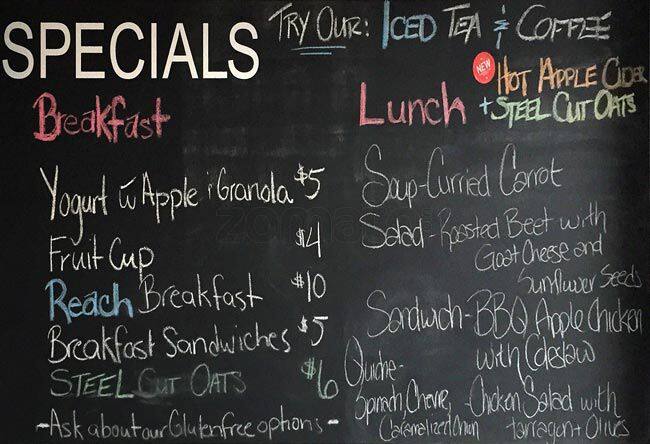 SPECIALS
TRY OUR: ICED TEA & COFFEE
NEW
HOT APPLE CIDER
+ STEEL CUT OATS
Breakfast
Yogurt w̄ Apple & Granola $5
Fruit Cup $4
Reach Breakfast $10
Breakfast Sandwiches $5
STEEL CUT OATS $6
-Ask about our Gluten free options-
Lunch
Soup-Curried Carrot
Salad-Roasted Beet with
Goat Cheese and
Sunflower Seeds
Sandwich-BBQ Apple Chicken
with Coleslaw
-Chicken Salad with
tarragon + Olives
Quiche-
Spinach, Chevre,
Caramelized Onion